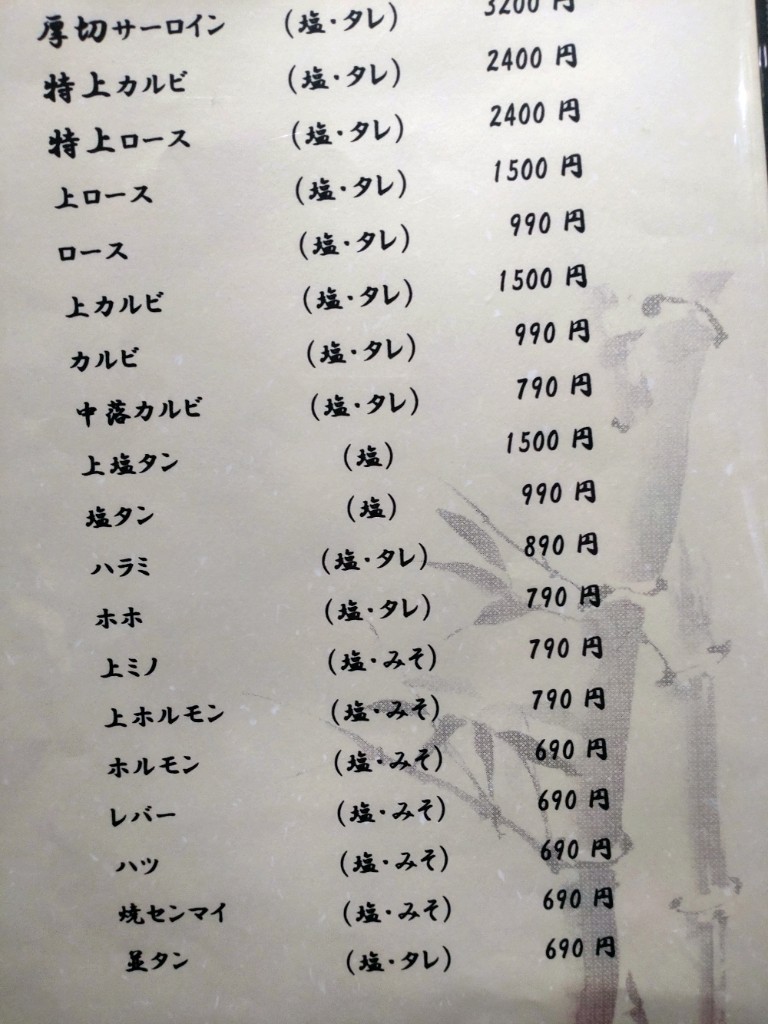 厚切サーロイン (塩・タレ) 3200 円
特上カルビ (塩・タレ) 2400 円
特上ロース (塩・タレ) 2400 円
上ロース (塩・タレ) 1500 円
ロース (塩・タレ) 990 円
上カルビ (塩・タレ) 1500 円
カルビ (塩・タレ) 990 円
中落カルビ (塩・タレ) 790 円
上塩タン (塩) 1500 円
塩タン (塩) 990 円
ハラミ (塩・タレ) 890 円
ホホ (塩・タレ) 790 円
上ミノ (塩・みそ) 790 円
上ホルモン (塩・みそ) 790 円
ホルモン (塩・みそ) 690 円
レバー (塩・みそ) 690 円
ハツ (塩・みそ) 690 円
焼センマイ (塩・みそ) 690 円
並タン (塩・タレ) 690 円